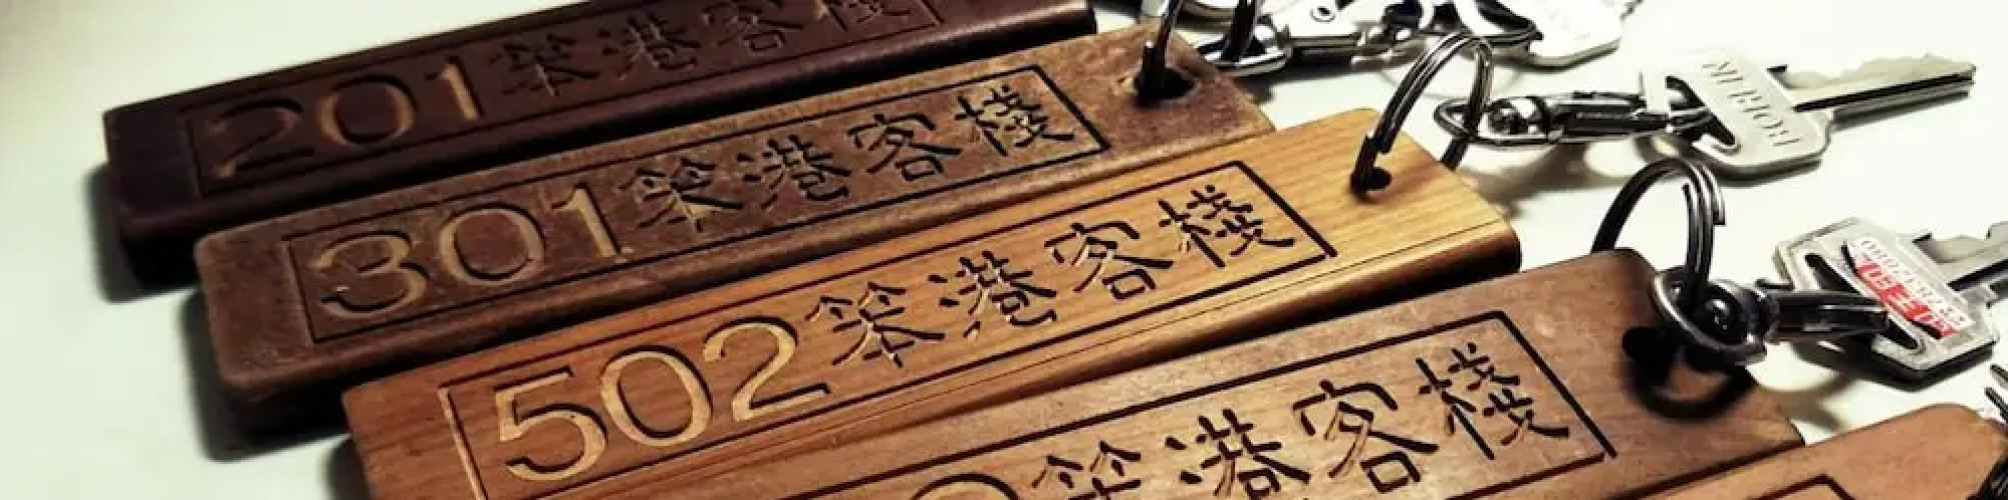 201笨港客棧
301笨港客棧
502笨港客棧
笨港客棧